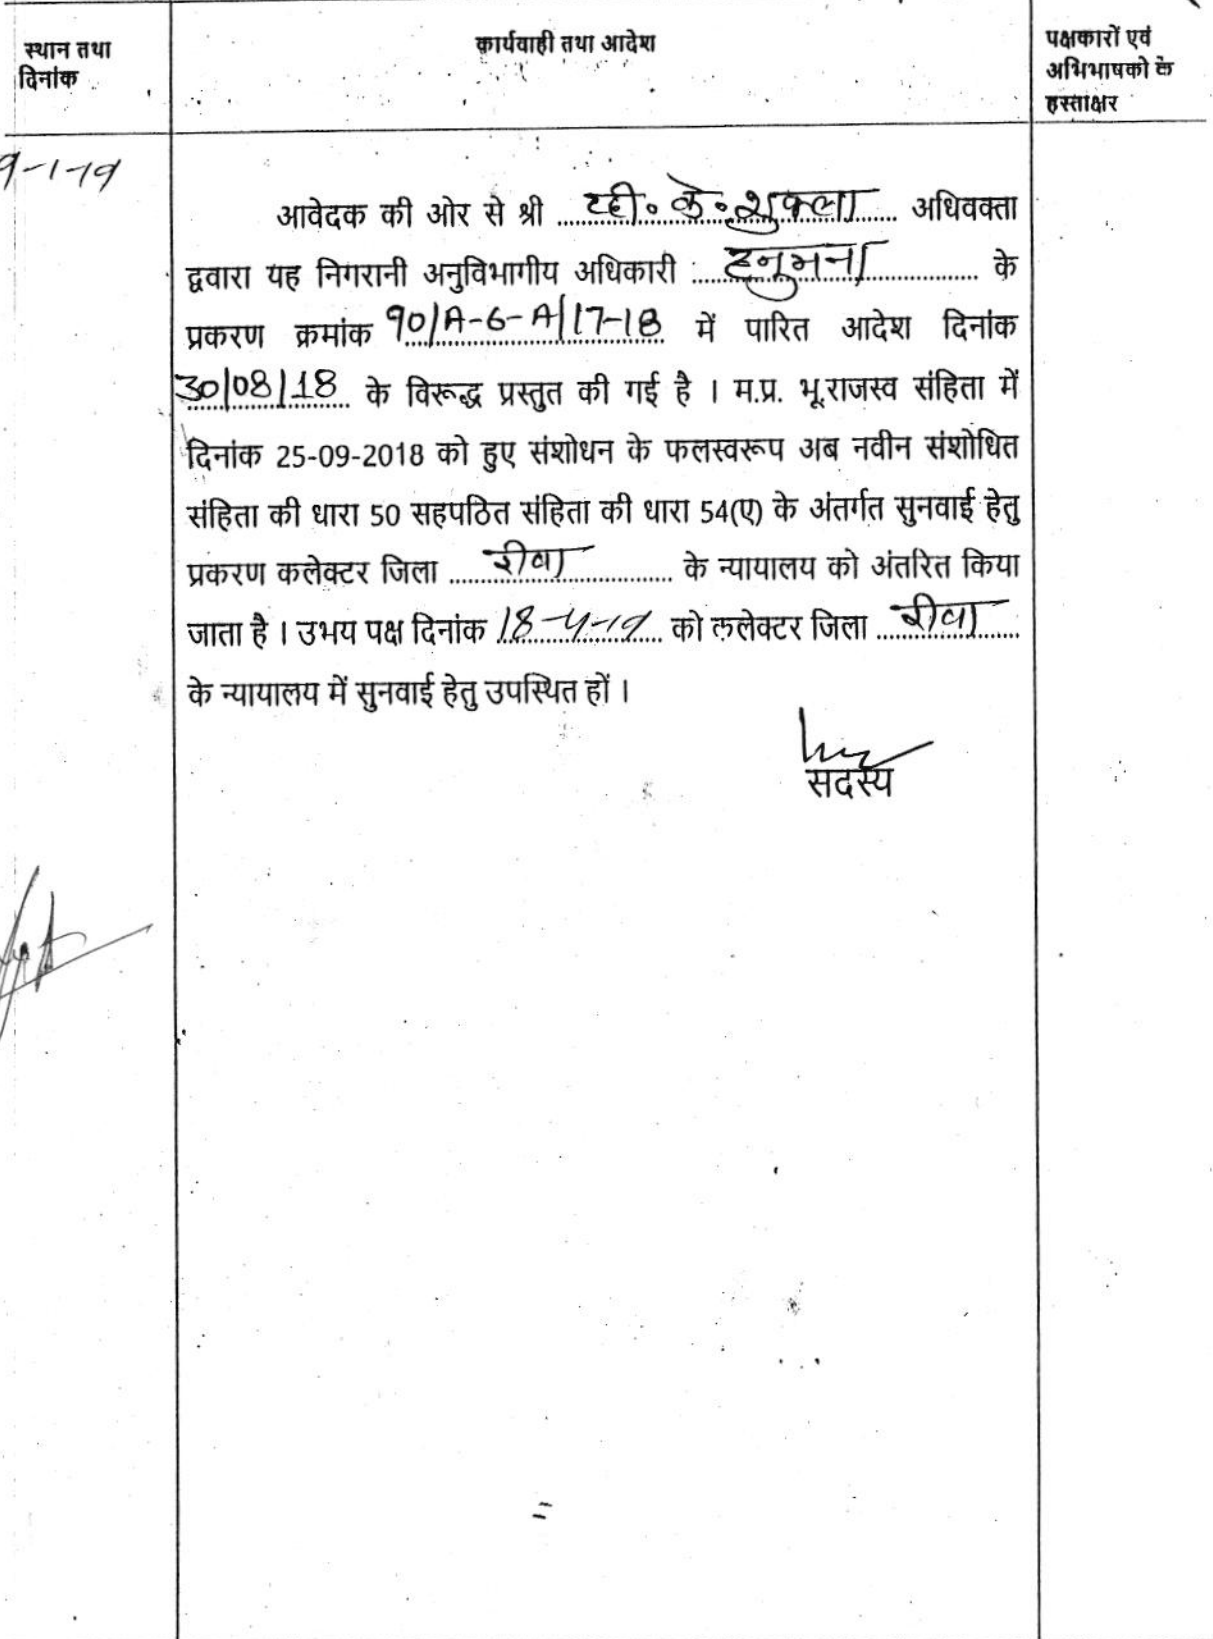 स्थान तथा
दिनांक
कार्यवाही तथा आदेश
पक्षकारों एवं
अभिभाषको के
हस्ताक्षर
9-1-19
आवेदक की ओर से श्री ..... व्ही. के. शुक्ला ..... अधिवक्ता
द्वारा यह निगरानी अनुविभागीय अधिकारी ..... हनुमना ..... के
प्रकरण क्रमांक 90/A-6-A/17-18 में पारित आदेश दिनांक
30/08/18 के विरूद्ध प्रस्तुत की गई है । म.प्र. भू.राजस्व संहिता में
दिनांक 25-09-2018 को हुए संशोधन के फलस्वरूप अब नवीन संशोधित
संहिता की धारा 50 सहपठित संहिता की धारा 54(ए) के अंतर्गत सुनवाई हेतु
प्रकरण कलेक्टर जिला ..... रीवा ..... के न्यायालय को अंतरित किया
जाता है । उभय पक्ष दिनांक 18-4-19 को कलेक्टर जिला ..... रीवा .....
के न्यायालय में सुनवाई हेतु उपस्थित हों ।
सदस्य